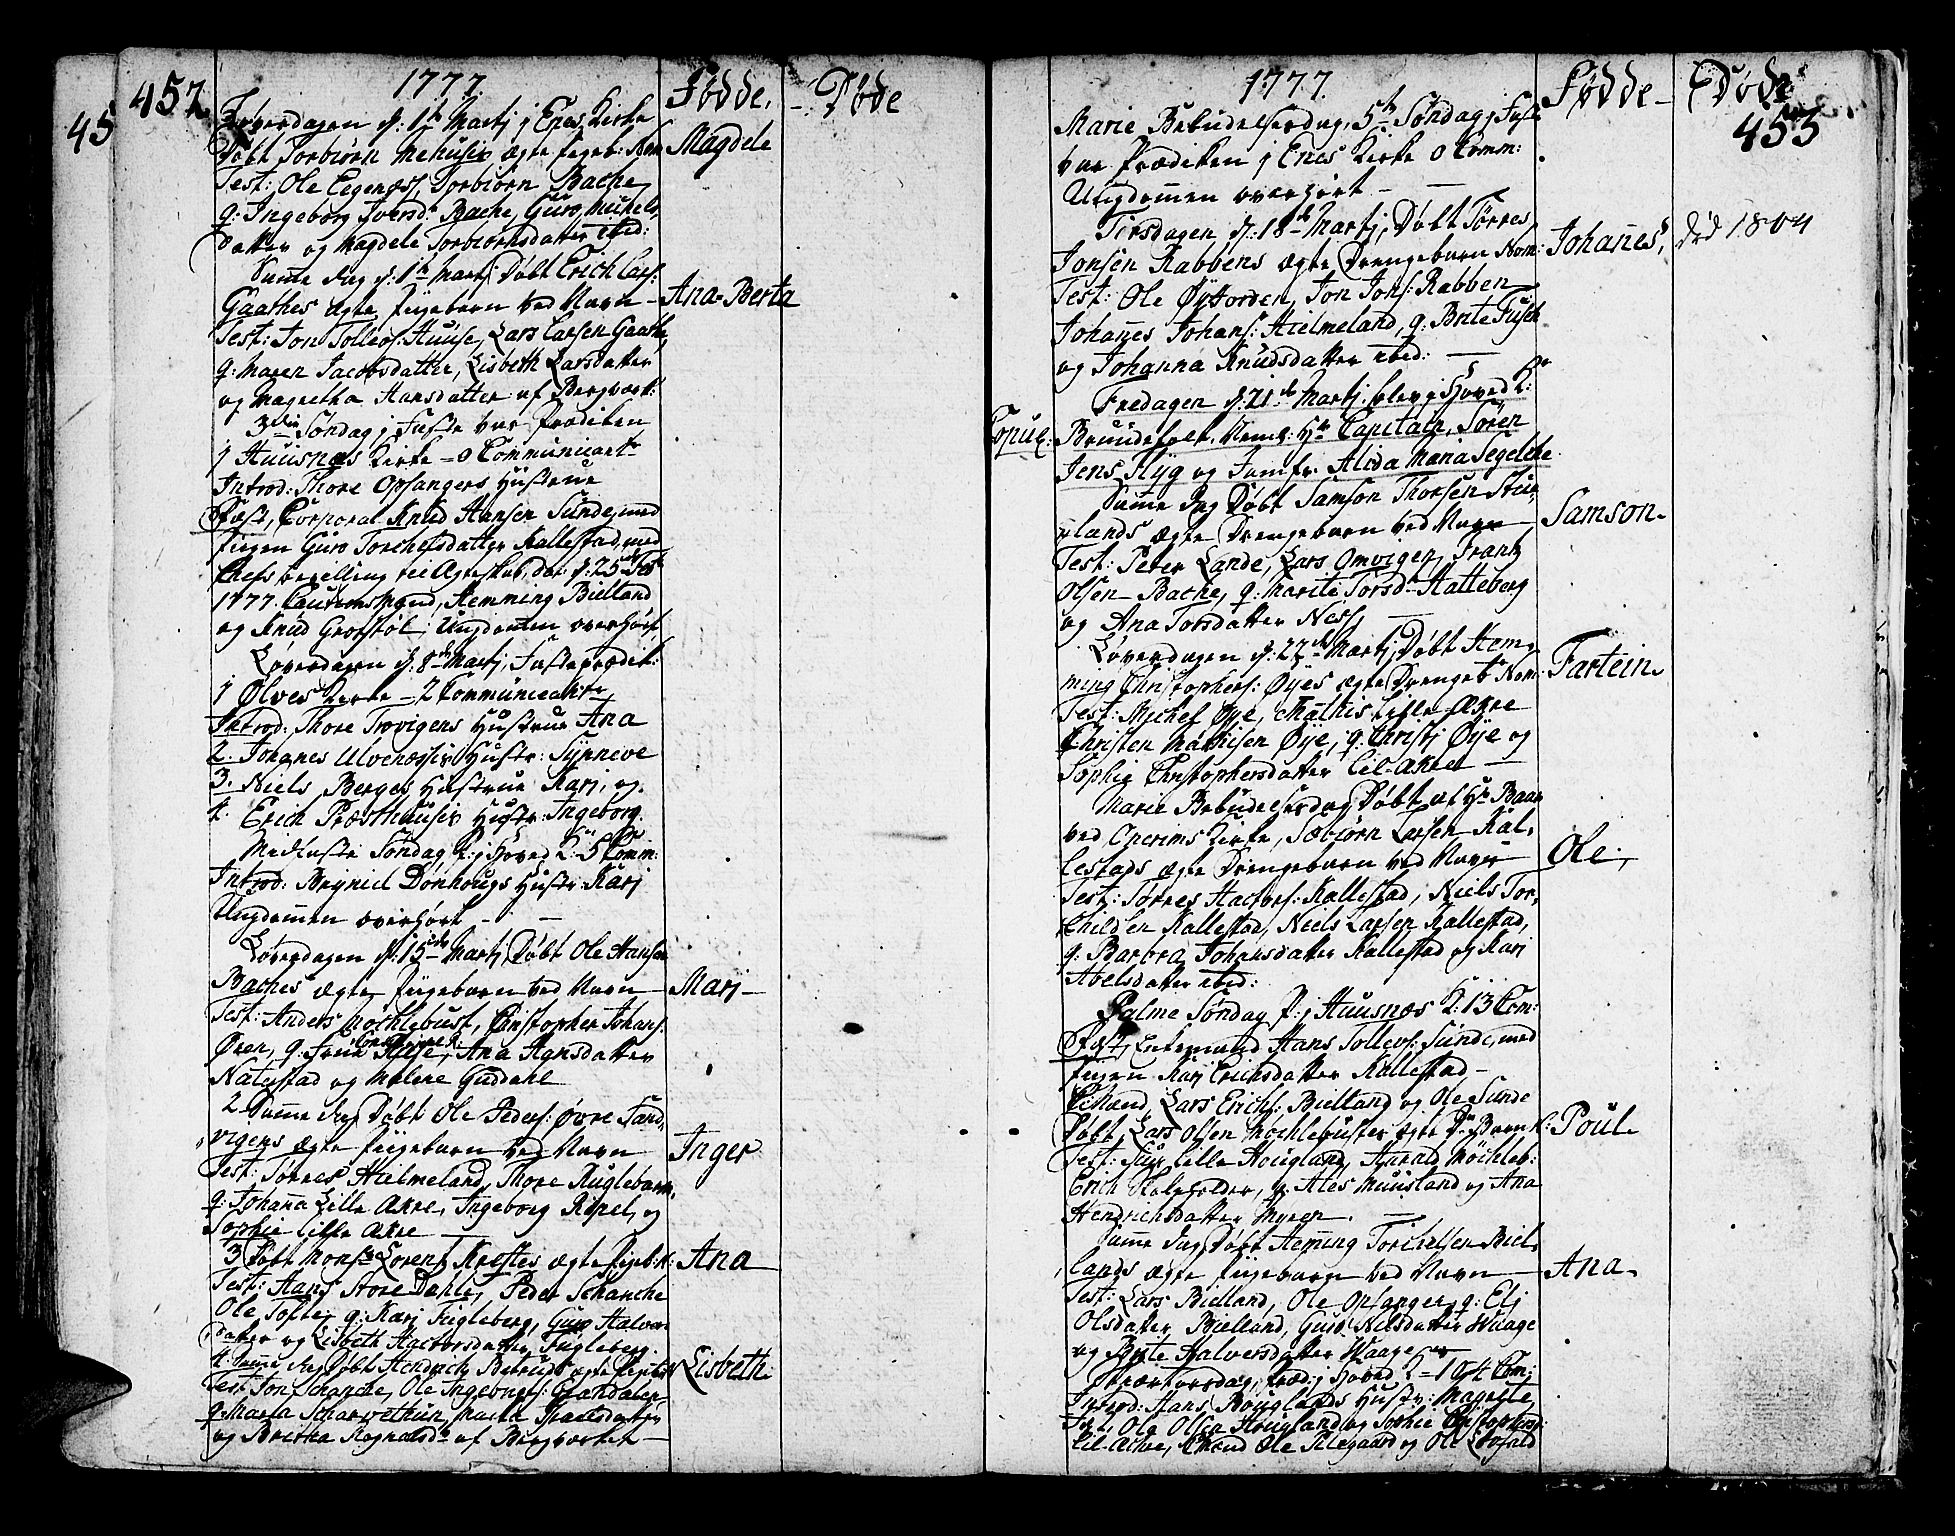 45
452
1777.
Fødde.
Døde
Løverdagen d: 1te Martj j Enes Kirke
Døbt Torbiørn Mehusis ægte Pigeb: Nom
Magdele
Test: Ole Eegenæss, Torbiørn Bache,
q: Ingeborg Iversdr Bache, Guro Mickels
datter og Magdele Torbiørnsdatter ibid:
Samme dag d: 1te Martj Døbt Erich Lars:
Gaashes ægte Pigebarn ved Navn
Ana-Berta
Test: Jon Tollevs: Huuse, Lars Larsen Gaashe,
q: Maren Jacobsdatter, Lisbeth Larsdatter
og Magretha Hansdatter af Bergværk:
3die Søndag j Faste var Prædiken
j Huusnæs Kirke - 0 Communicantr
Introd: Thore Opsangers Hustrue
Fæst, Corporal Knud Hansen Sunde, med
Pigen Guro Torchelsdatter Kallestad, med
Chefs tilladelse til Ægteskab, dat: d: 25 Feb
1777. Cautions Mænd, Hemming Bielland
og Knud Grofstøl; Ungdomen overhørt
Løverdagen d: 8de Martj, Fasteprædik:
j Ølves Kirke - 2 Communicantr
Introd: Thore Trovigens Hustrue Ana
2. Johanes Ulvenæssis Hustr: Synneve
3. Niels Berges Hustrue Karj, og
4. Erich Præsthuusis Hustr: Ingeborg.
Midfaste Søndag P: j Hoved K: 5 Comm:
Introd: Brynild Dønhougs Hustr: Karj
Ungdomen overhørt -
Løverdagen d: 15de Martj, Døbt Ole Hansen
Baches ægte Pigebarn ved Navn
Marj
Test: Anders Møchlebust, Christopher Johans:
Øren, q: Frue Hilse, Ana Agnsdatter
Natestad og Malene Guddahl
2. Samme dag Døbt Ole Peders: Øvre Sand
vigens ægte Pigebarn ved Navn
Inger
Test: Tørres Hielmeland, Thore Fugleberg
q: Johanna Lille Akre, Ingeborg Ripel, og
Sophie Lille Akre
3 Døbt Mons: Lorens Krestes ægte Pigeb: N:
Ana
Test: Hans Store Dahle, Peder Schanche
Ole Tofte, q: Karj Fugleberg, Guro Halvor
datter og Lisbeth Halvorsdatter Fugleberg.
4. Samme dag Døbt Hendrich Bernds ægte Pigeb:
Lisbeth
Test: Jon Schancke, Ole Ingebrigts:
q: Maria
og Birtha Rognaldsdr af Bergværket
453
1777.
Fødde
Døde
Marie Bebudelsesdag, 5te Søndag j Faste
var Prædiken j Enes Kirke 0 Comm:
Ungdomen overhørt -
Tirsdagen d: 18de Martj, Døbt Tørres
Jonsen Rabbens ægte Drengebarn Nom:
Johanes,
død 1804
Test: Ole Øyjorden, Jon Jons: Rabben
Johanes Johans: Hielmeland, q: Brite Fusch
og Johanna Knudsdatter ibid:
Fredagen d: 21de Martj blev j Hoved K:
Copul:
Brudefolk, Neml: Hr Capitain, Søren
Jens Flyg og Jomfr. Alida Maria Segelche
Samme Dag Døbt Samson Thorsen Stue
lands ægte Drengebarn ved Navn
Samson
Test: Peter Lande, Lars Omvigen, Frantz
Olsen Bache, q: Marite Torsdr Hatteberg
og Ana Torsdatter Ness,
Løverdagen d: 22de Martj, Døbt Hem
ming Christophers: Øyes ægte Drengebn Nom:
Fartein
Test: Michel Øye, Mathis Lille Akre
Christen Mathisen Øye, q: Christj Øye og
Sophie Christophersdatter Lil-Akre
Marie Bebudelsesdag Døbt af Hr Baar
ved Onerems Kirke, Sæbiørn Larsen Kal
lestads ægte Drengebarn ved Navn
Ole
Test: Tørres Hactors: Kallestad, Niels Tor
childsen Kallestad, Niels Larsen Kallestad,
q: Barbra Johansdatter Kallestad og Karj
Abelsdatter ibid:
Palme Søndag P: j Huusnæs K: 13 Com:
Fæst, Entemand Hans Tollevs: Sunde, med
Pigen Karj Erichsdatter Kallestad -
Lars Erichs: Bielland og Ole Sunde
Døbt, Lars Olsen Mochlebustes ægte Dr: Barn N:
Poul
Test: Lille Hougland, Møchleb:
Erich, q: Ales Muusland og Ana
Hendrichsdatter Myren.
Samme dag Døbt Hemming Torchelsen Biel
lands ægte Pigebarn ved Navn
Ana
Test: Lars Bielland, Ole Opsanger, q: Elj
Olsdatter Bielland, Guro Nilsdatter Waage
og Brite Halversdatter Waage
Skiærtorsdag, Præd: j Hoved K = 104 Com:
Introd: Hans Houglands Hustr: Magrete
Ole Olsen Hougland og Sophie Christophers:
Lil-Achre, Ole Pilegaard og Ole